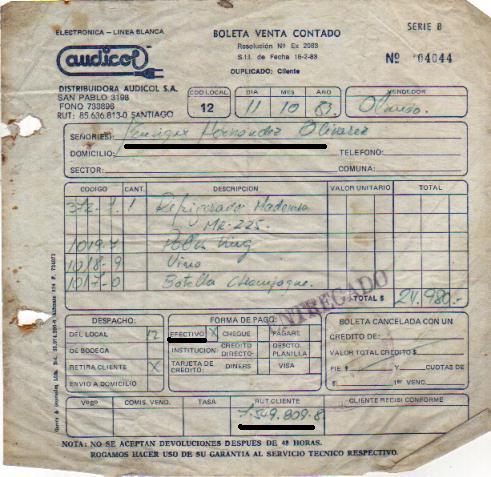 ELECTRONICA - LINEA BLANCA
audicol
DISTRIBUIDORA AUDICOL S.A.
SAN PABLO 3198
FONO 733896
RUT: 85.636.813-0 SANTIAGO
BOLETA VENTA CONTADO
Resolución Nº Ex 2083
S.I.I. de Fecha 16-2-83
DUPLICADO: Cliente
SERIE B
Nº 04044
COD LOCAL DIA MES AÑO VENDEDOR
12 11 10 83
SEÑOR(ES): Enrique Hernandez Olivares
DOMICILIO: TELEFONO:
SECTOR: COMUNA:
CODIGO CANT. DESCRIPCION VALOR UNITARIO TOTAL
372-1 1 Refrigerador Mademsa
MR-225.
1019-7
1018-9 Vino
1017-0 Botella Champagne.
ENTREGADO
TOTAL $ 24.980.-
DESPACHO:
DEL LOCAL 12
DE BODEGA
RETIRA CLIENTE X
ENVIO A DOMICILIO
FORMA DE PAGO:
EFECTIVO X CHEQUE PAGARE
INSTITUCION CREDITO DIRECTO: DESCTO. PLANILLA
TARJETA DE CREDITO: DINERS VISA
BOLETA CANCELADA CON UN
CREDITO DE:
VALOR TOTAL CREDITO $
PIE $ Y CUOTAS DE
$ 1er VENC.
VºBº COMIS. VENO. TASA RUT CLIENTE CLIENTE RECIBI CONFORME
NOTA: NO SE ACEPTAN DEVOLUCIONES DESPUES DE 48 HORAS.
ROGAMOS HACER USO DE SU GARANTIA AL SERVICIO TECNICO RESPECTIVO.